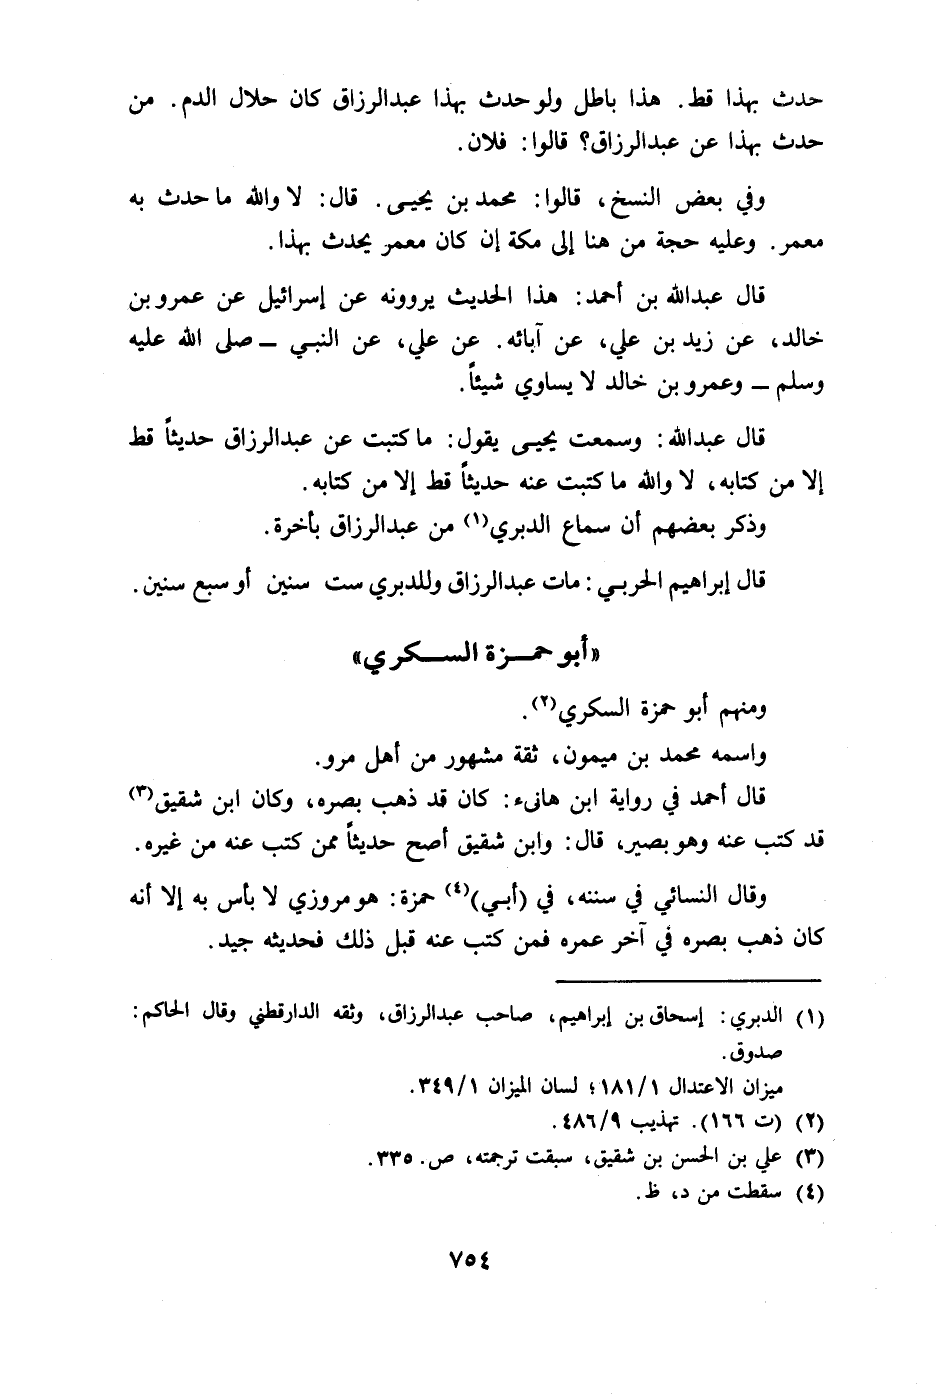 حدث بهذا قط. هذا باطل ولو حدث بهذا عبدالرزاق كان حلال الدم. من
حدث بهذا عن عبدالرزاق؟ قالوا: فلان.
وفي بعض النسخ، قالوا: محمد بن يحيى. قال: لا والله ما حدث به
معمر. وعليه حجة من هنا إلى مكة إن كان معمر يحدث بهذا.
قال عبدالله بن أحمد: هذا الحديث يروونه عن إسرائيل عن عمرو بن
خالد، عن زيد بن علي، عن آبائه. عن علي، عن النبي ــ صلى الله عليه
وسلم ــ وعمرو بن خالد لا يساوي شيئاً.
قال عبدالله: وسمعت يحيى يقول: ما كتبت عن عبدالرزاق حديثاً قط
إلا من كتابه، لا والله ما كتبت عنه حديثاً قط إلا من كتابه.
وذكر بعضهم أن سماع الدبري(١) من عبدالرزاق بأخرة.
قال إبراهيم الحربي: مات عبدالرزاق وللدبري ست سنين أو سبع سنين.
«أبو حمزة السكري»
ومنهم أبو حمزة السكري(٢).
واسمه محمد بن ميمون، ثقة مشهور من أهل مرو.
قال أحمد في رواية ابن هانىء: كان قد ذهب بصره، وكان ابن شقيق(٣)
قد كتب عنه وهو بصير، قال: وابن شقيق أصح حديثاً ممن كتب عنه من غيره.
وقال النسائي في سننه، في (أبي)(٤) حمزة: هو مروزي لا بأس به إلا أنه
كان ذهب بصره في آخر عمره فمن كتب عنه قبل ذلك فحديثه جيد.
(١) الدبري: إسحاق بن إبراهيم، صاحب عبدالرزاق، وثقه الدارقطني وقال الحاكم:
صدوق.
ميزان الاعتدال ١٨١/١؛ لسان الميزان ٣٤٩/١.
(٢) (ت ١٦٦). تهذيب ٤٨٦/٩.
(٣) علي بن الحسن بن شقيق، سبقت ترجمته، ص. ٣٣٥.
(٤) سقطت من د، ظ.
٧٥٤